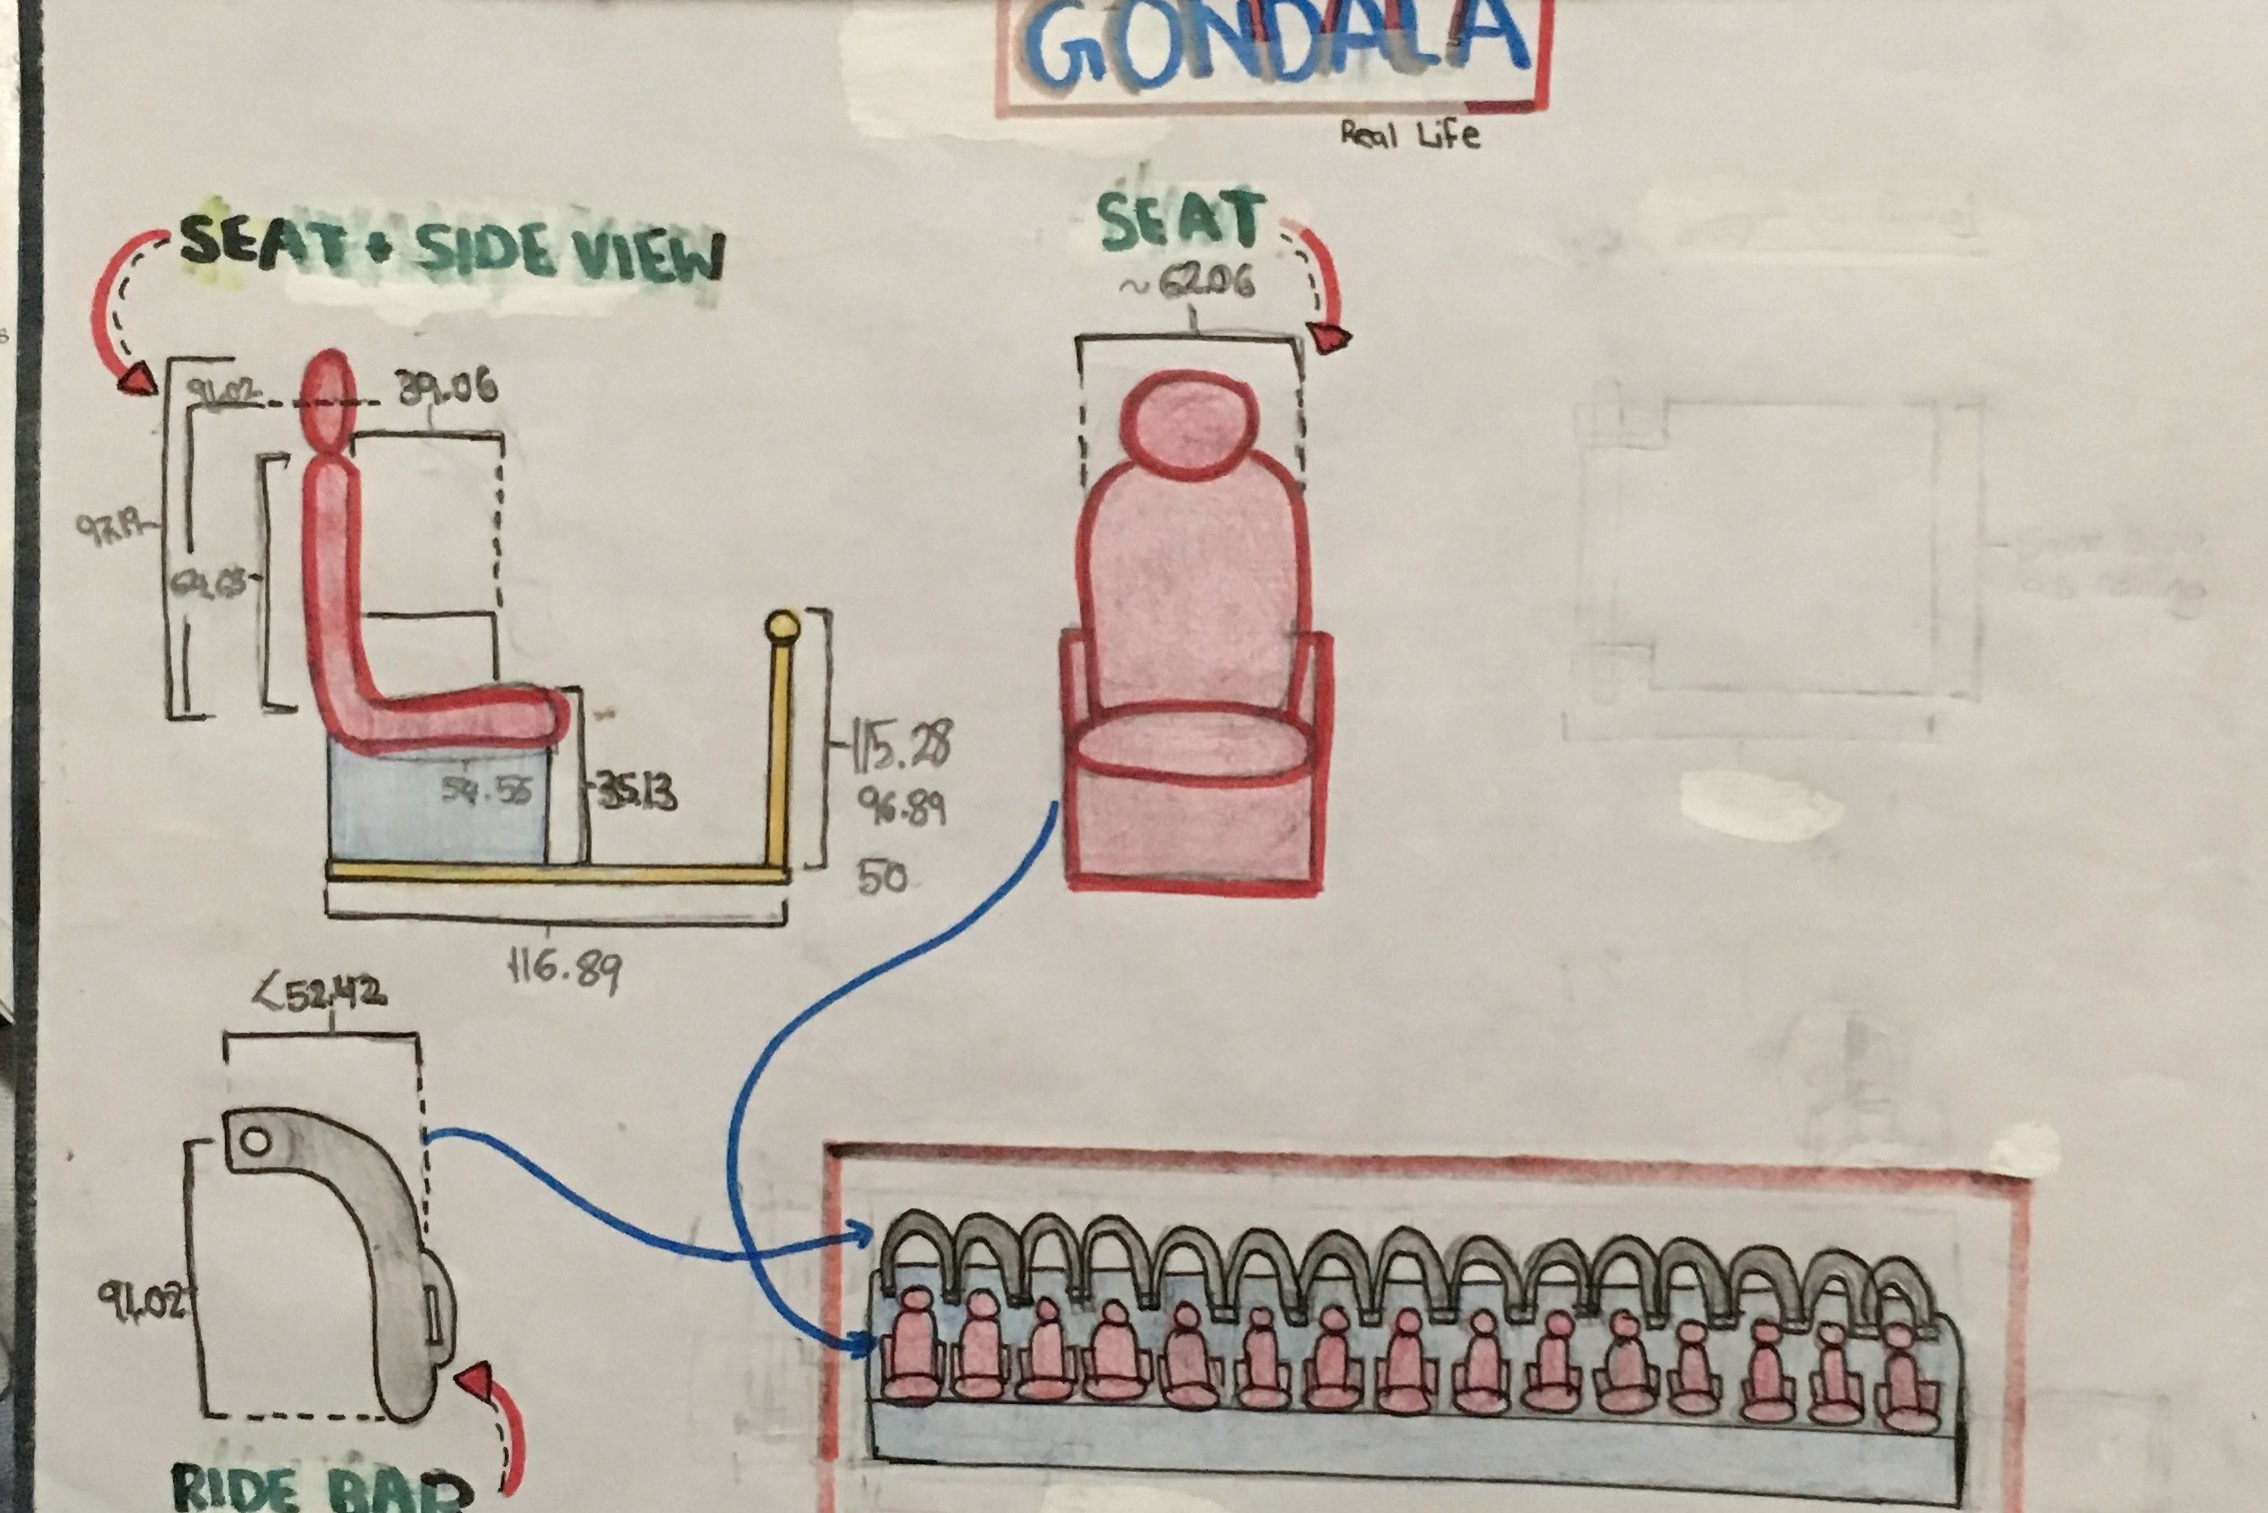 GONDALA
Real Life
SEAT + SIDE VIEW
SEAT
~62.06
91.02
39.06
97.19
64.63
54.56
35.13
115.28
96.89
50
116.89
<52.42
91.02
RIDE BAR